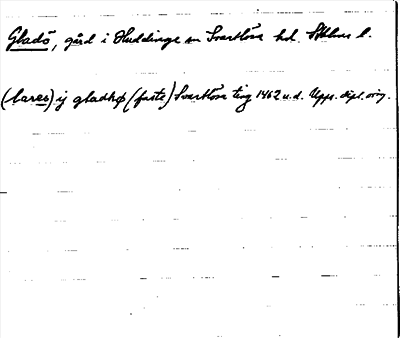 Gladö, gård i Huddinge sn Svartlösa hd. Sthlms l.
(lares) ij gladhø (faste) Svartlösa ting 1462 u.d. Upps. dipl. orig.